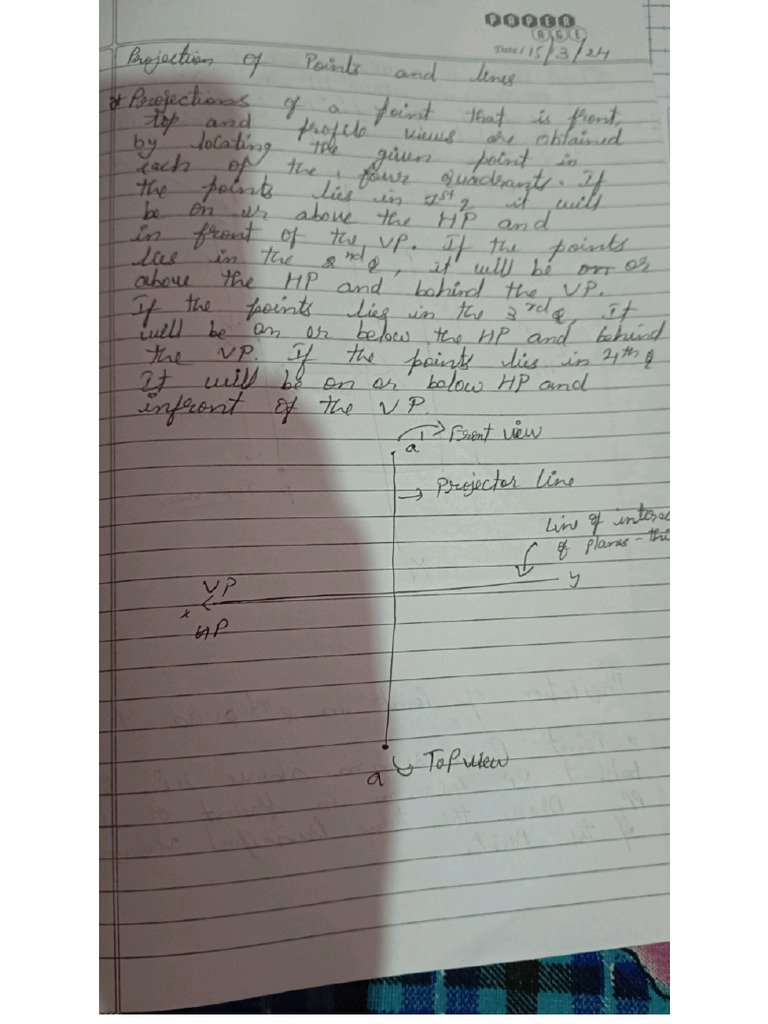 PAPER
AGE
Date: 15/3/24
Projection of Points and lines
* Projections of a point that is front,
top and profile views are obtained
by locating the given point in
each of the four quadrants. If
the points lies in 1st q it will
be on or above the HP and
in front of the VP. If the points
lies in the 2nd q, it will be on or
above the HP and behind the VP.
If the points lies in the 3rd q, it
will be on or below the HP and behind
the VP. If the points lies in 4th q
It will be on or below HP and
infront of the VP.
a' Front view
Projector line
Line of
of planes -
VP
x y
HP
a Top view